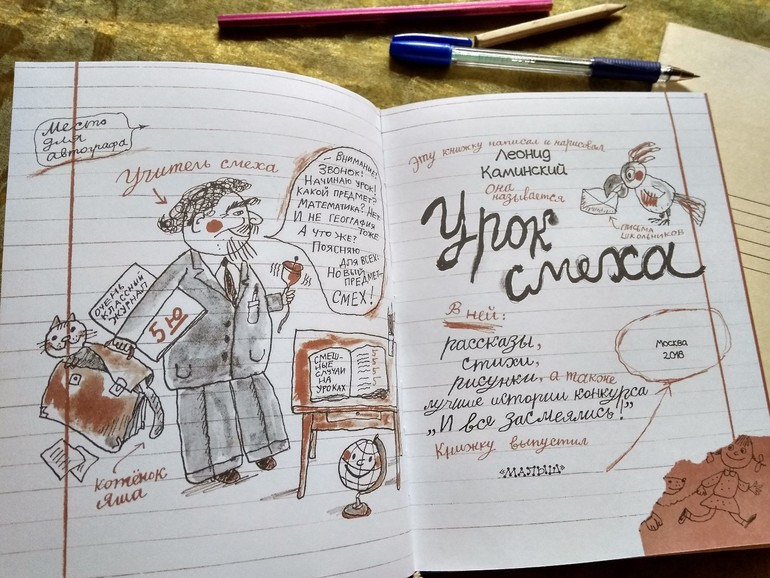 Место
для
автографа
Учитель смеха
– Внимание!
Звонок!
Начинаю урок!
Какой предмет?
Математика? Нет.
И не география
тоже.
А что же?
Поясняю
для всех:
Новый
предмет–
СМЕХ!
ОЧЕНЬ
КЛАССНЫЙ
ЖУРНАЛ
5 Ю
СМЕШ-
НЫЕ
СЛУЧАИ
НА
УРОКАХ
котёнок
Яша
Эту книжку написал и нарисовал
Леонид
Каминский
Она
называется
Урок
смеха
письма
школьников
В ней:
рассказы,
стихи,
рисунки, а также
лучшие истории конкурса
„И все засмеялись!"
Книжку выпустил
«МАЛЫШ»
Москва
2018